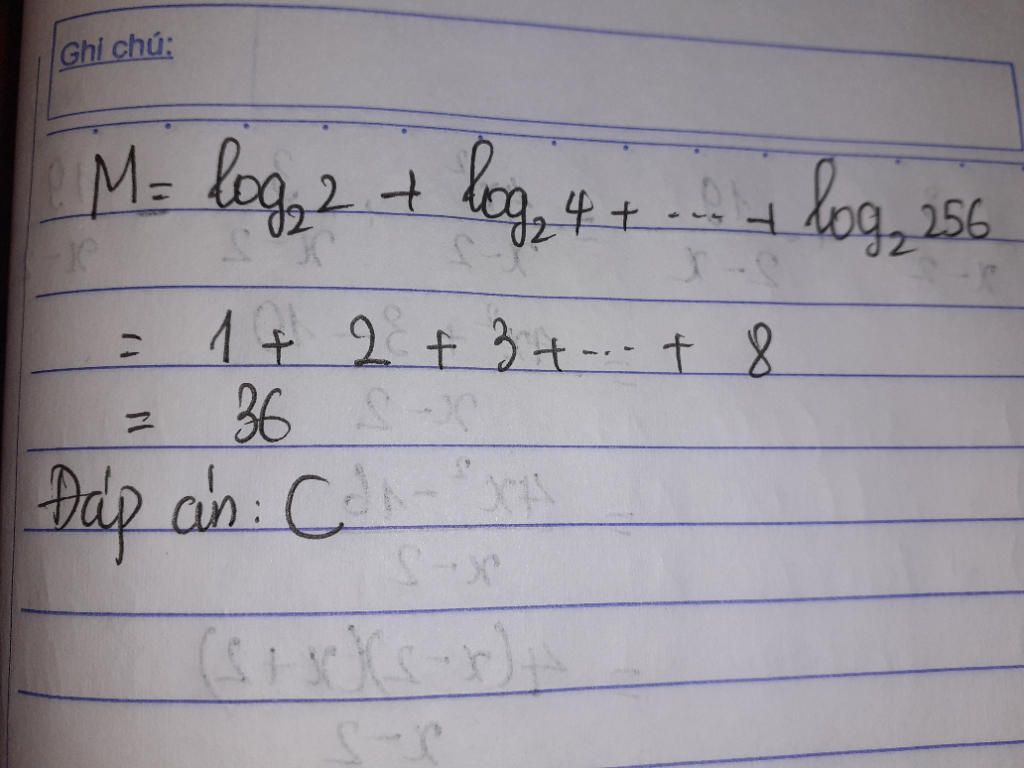 Ghi chú:
M = log₂2 + log₂4 + ... + log₂256
= 1 + 2 + 3 + ... + 8
= 36
Đáp án: C